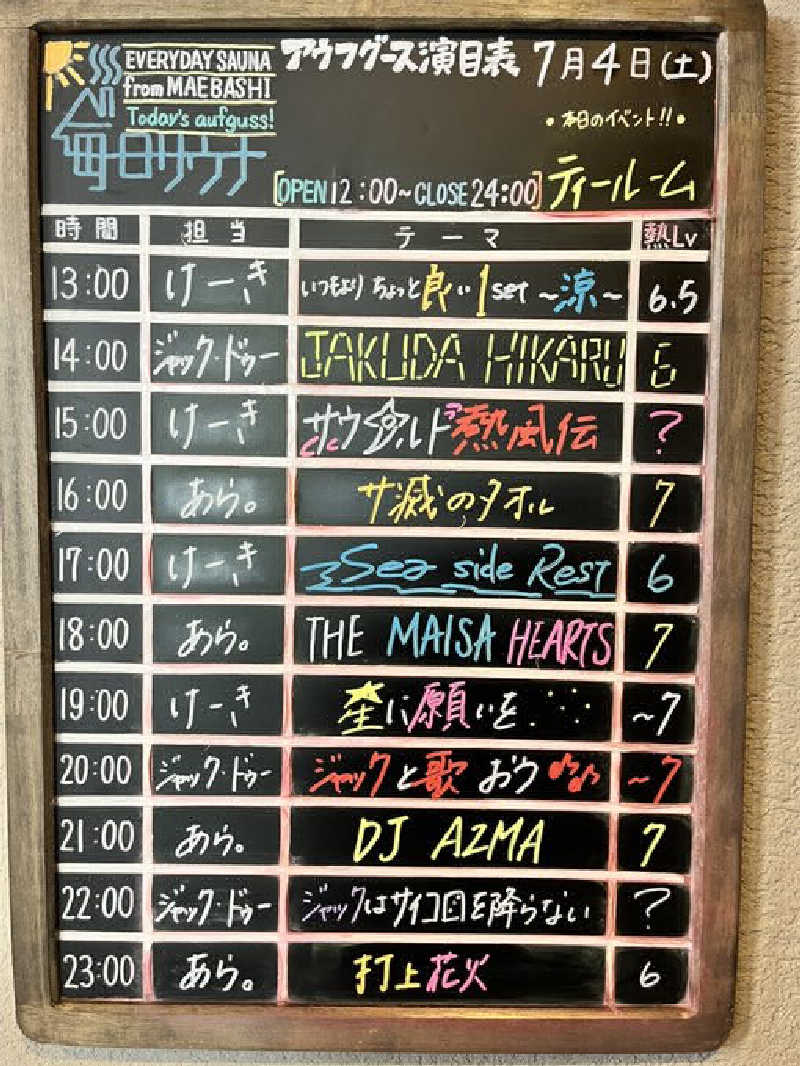 EVERYDAY SAUNA
from MAEBASHI
Today's aufguss!
毎日サウナ
アウフグース演目表 7月4日(土)
•本日のイベント!!•
[OPEN 12:00~CLOSE 24:00] ティールーム
時間 担当 テーマ 熱Lv
13:00 けーき いつもより ちょっと良い1set ~涼~ 6.5
14:00 ジャック・ドゥー JAKUDA HIKARU 6
15:00 けーき 熱風伝 ?
16:00 あら。 サ滅のタオル 7
17:00 けーき Sea side Rest 6
18:00 あら。 THE MAISA HEARTS 7
19:00 けーき 星に願いを ~7
20:00 ジャック・ドゥー ジャックと歌おう ~7
21:00 あら。 DJ AZMA 7
22:00 ジャック・ドゥー ジャックはサイコロを降らない ?
23:00 あら。 打上花火 6